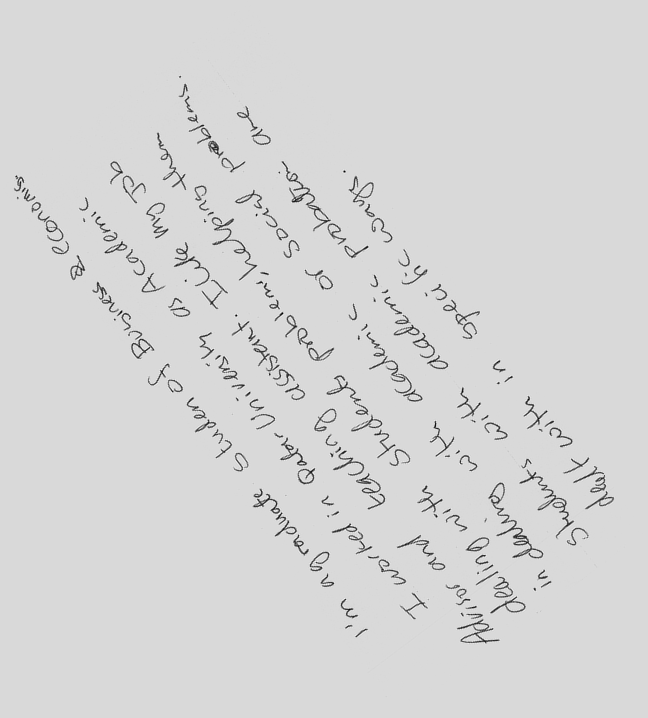 I'm a graduate Studen of Business & economis.
I worked in Qatar University as Academic
Advisor and teaching assistant. I like my Job
dealing with students problem, helping them
in dealing with academic or social problems.
Students with academic probation are
dealt with in specific ways.